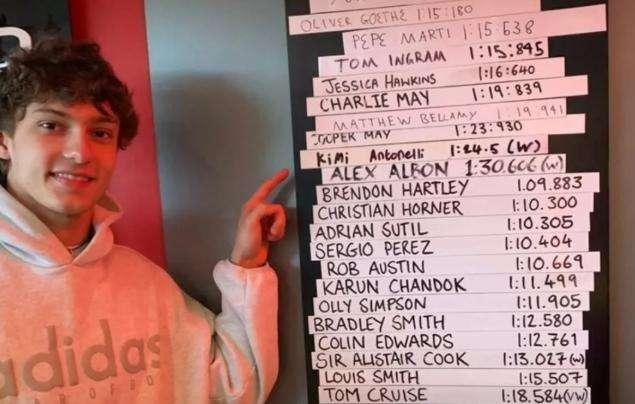 OLIVER GOETHE 1:15:180
PEPE MARTI 1:15:638
TOM INGRAM 1:15:845
JESSICA HAWKINS 1:16:640
CHARLIE MAY 1:19:839
MATTHEW BELLAMY 1:19.941
COOPER MAY 1:23:930
KiMi Antonelli 1:24.5 (W)
ALEX ALBON 1:30.606(W)
BRENDON HARTLEY 1.09.883
CHRISTIAN HORNER 1:10.300
ADRIAN SUTIL 1:10.305
SERGIO PEREZ 1:10.404
ROB AUSTIN 1:10.669
KARUN CHANDOK 1:11.499
OLLY SIMPSON 1:11.905
BRADLEY SMITH 1:12.580
COLIN EDWARDS 1:12.761
SIR ALISTAIR COOK 1:13.027(W)
LOUIS SMITH 1:15.507
TOM CRUISE 1:18.584(VW)
adidas